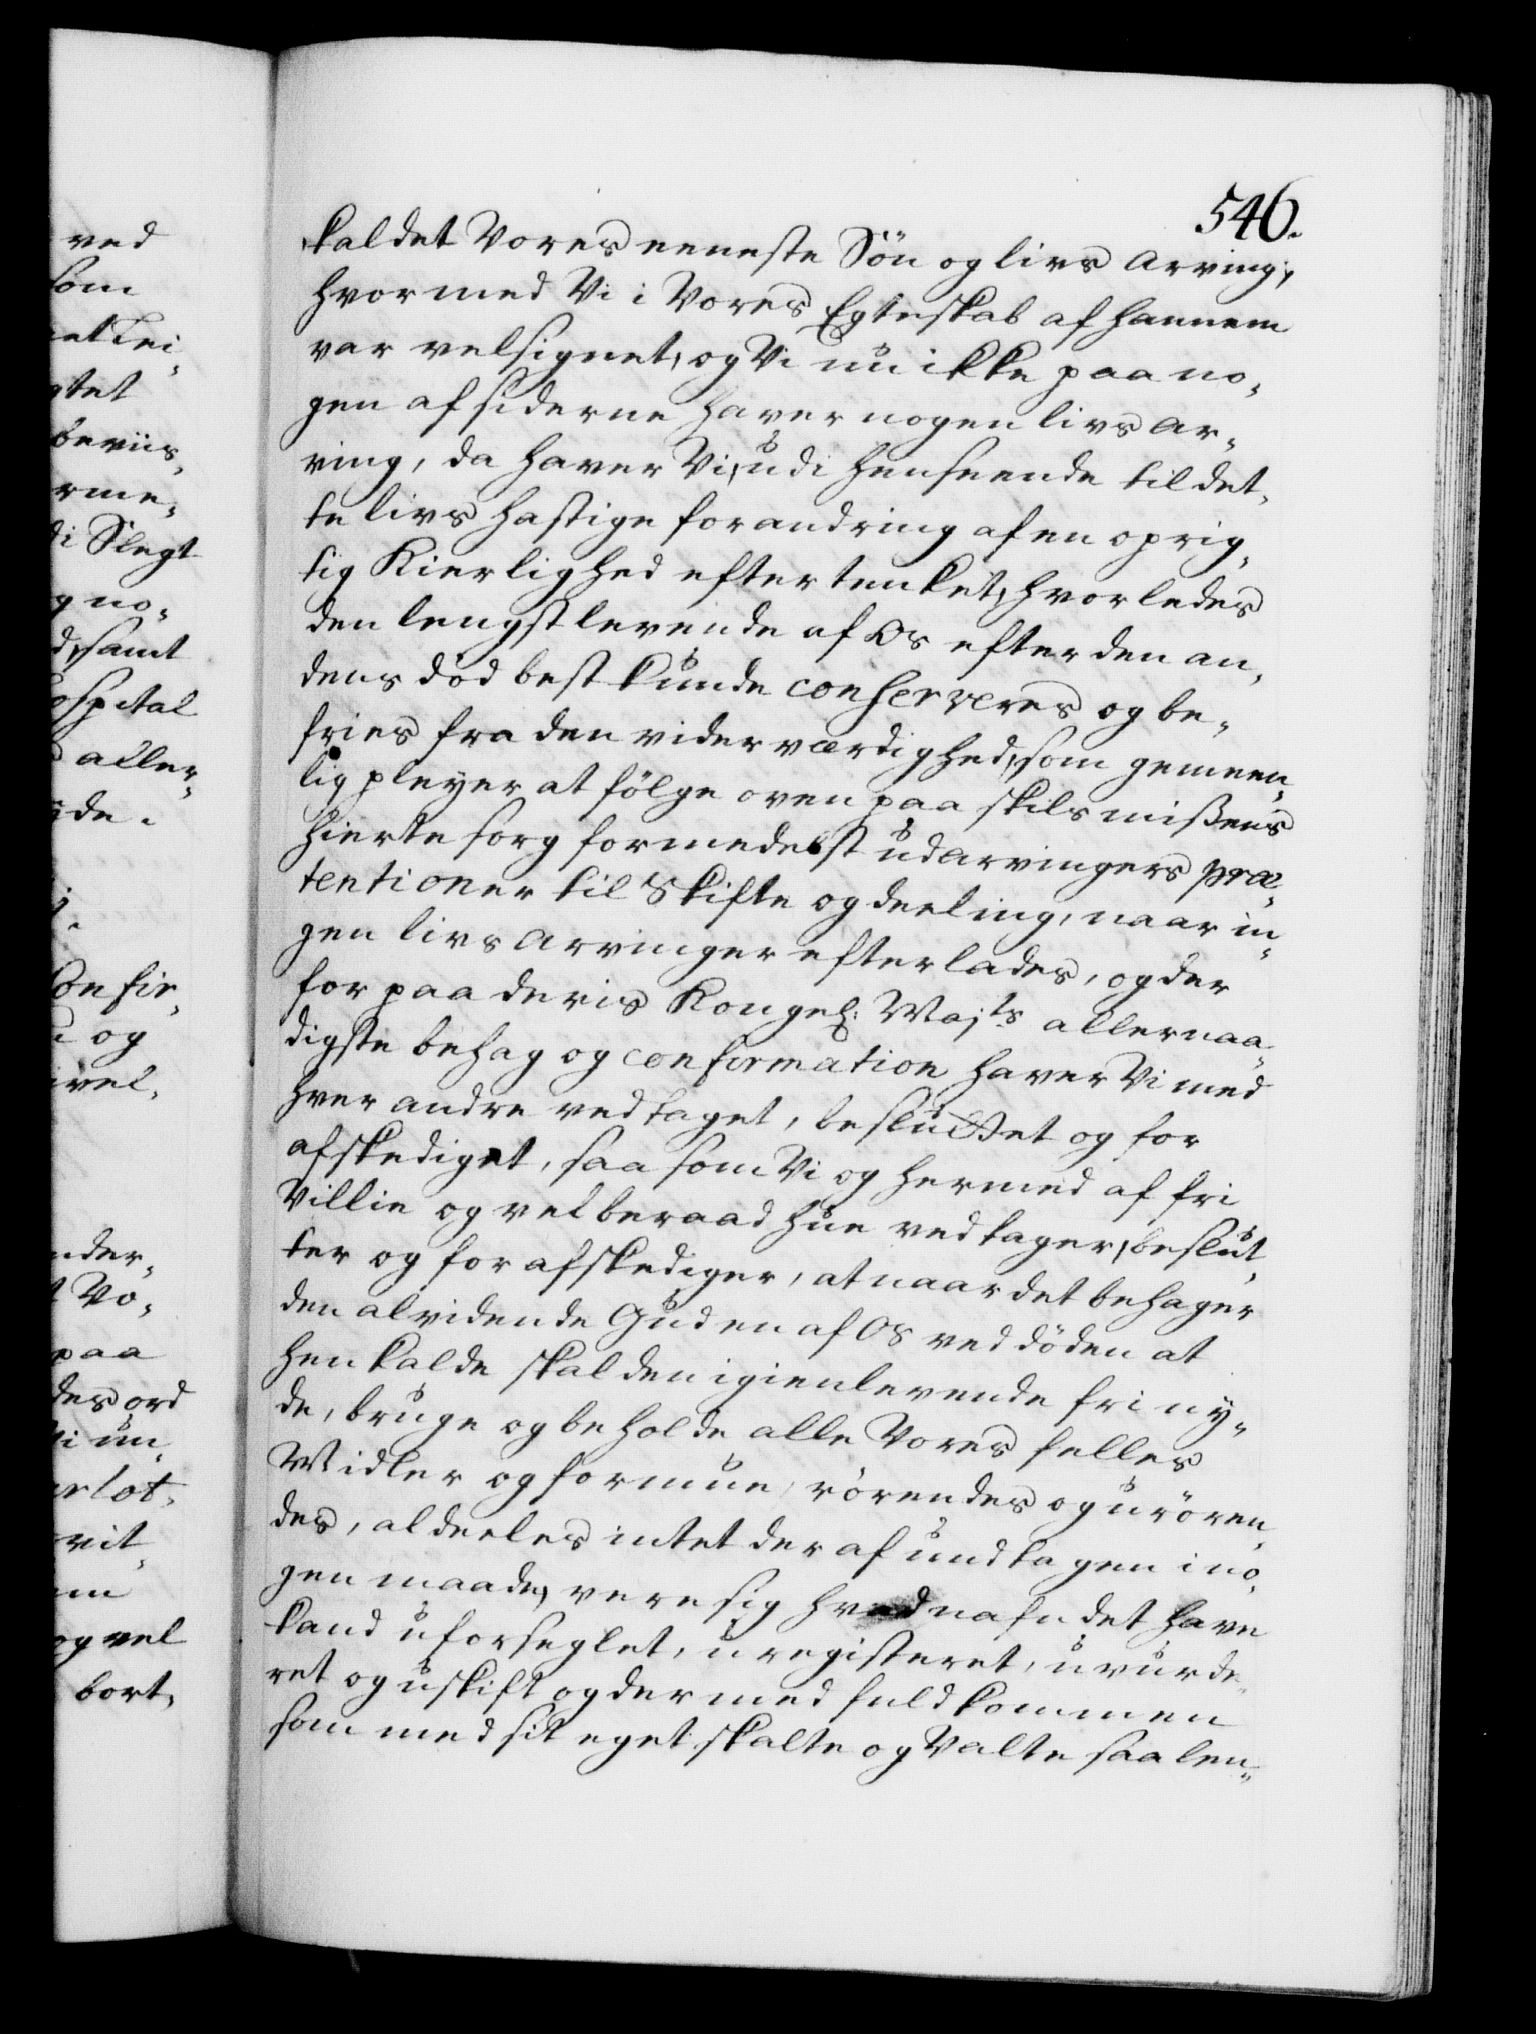 546.
kaldet Vores eeneste Sön og livs Arving,
hvormed Vi i Vores Egteskab af hannem
var velsignet, og Vi nu ikke paa no-
gen af siderne haver nogen livs Ar-
ving, da haver Vi, udi henseende til det-
te livs hastige forandring af en oprig-
tig Kierlighed eftertenket, hvorledes
den lengstlevende af Os efter den an-
dens död best kunde conserveres og be-
fries fra den viderværdighed, som gemeen-
lig pleyer at fölge oven paa skilsmissens
hierte sorg formedelst udarvingers præ-
tentioner til Skifte og deeling, naar in-
gen livs Arvinger efterlades, og der
for paa deris Kongel: Majts allernaa-
digste behag og confirmation haver Vi med
hver andre vedtaget, besluttet og for
afskediget, saa som Vi og hermed af fri
Villie og velberaad hue vedtager, beslut-
ter og forafskediger, at naar det behager
den alvidende Gud en af Os ved döden at
henkalde skal den igienlevende fri ny-
de, bruge og beholde alle Vores felles
Midler og formue, rörendes og urören-
des, aldeeles intet deraf undtagen i no-
gen maade, vere sig hvad nafn det have
kand uforseglet, uregisteret, uvurde-
ret og uskift og dermed fuldkommen
som med sit eget skalte og Valte saa len-
ved
som
gtet
beviis-
rme-
di Slegt
g no-
d, samt
ospital
aller-
de.
Confir-
og
vel-
nder-
t Vo-
paa
des ord
Vi un-
rlot-
vit-
og vel
bort-